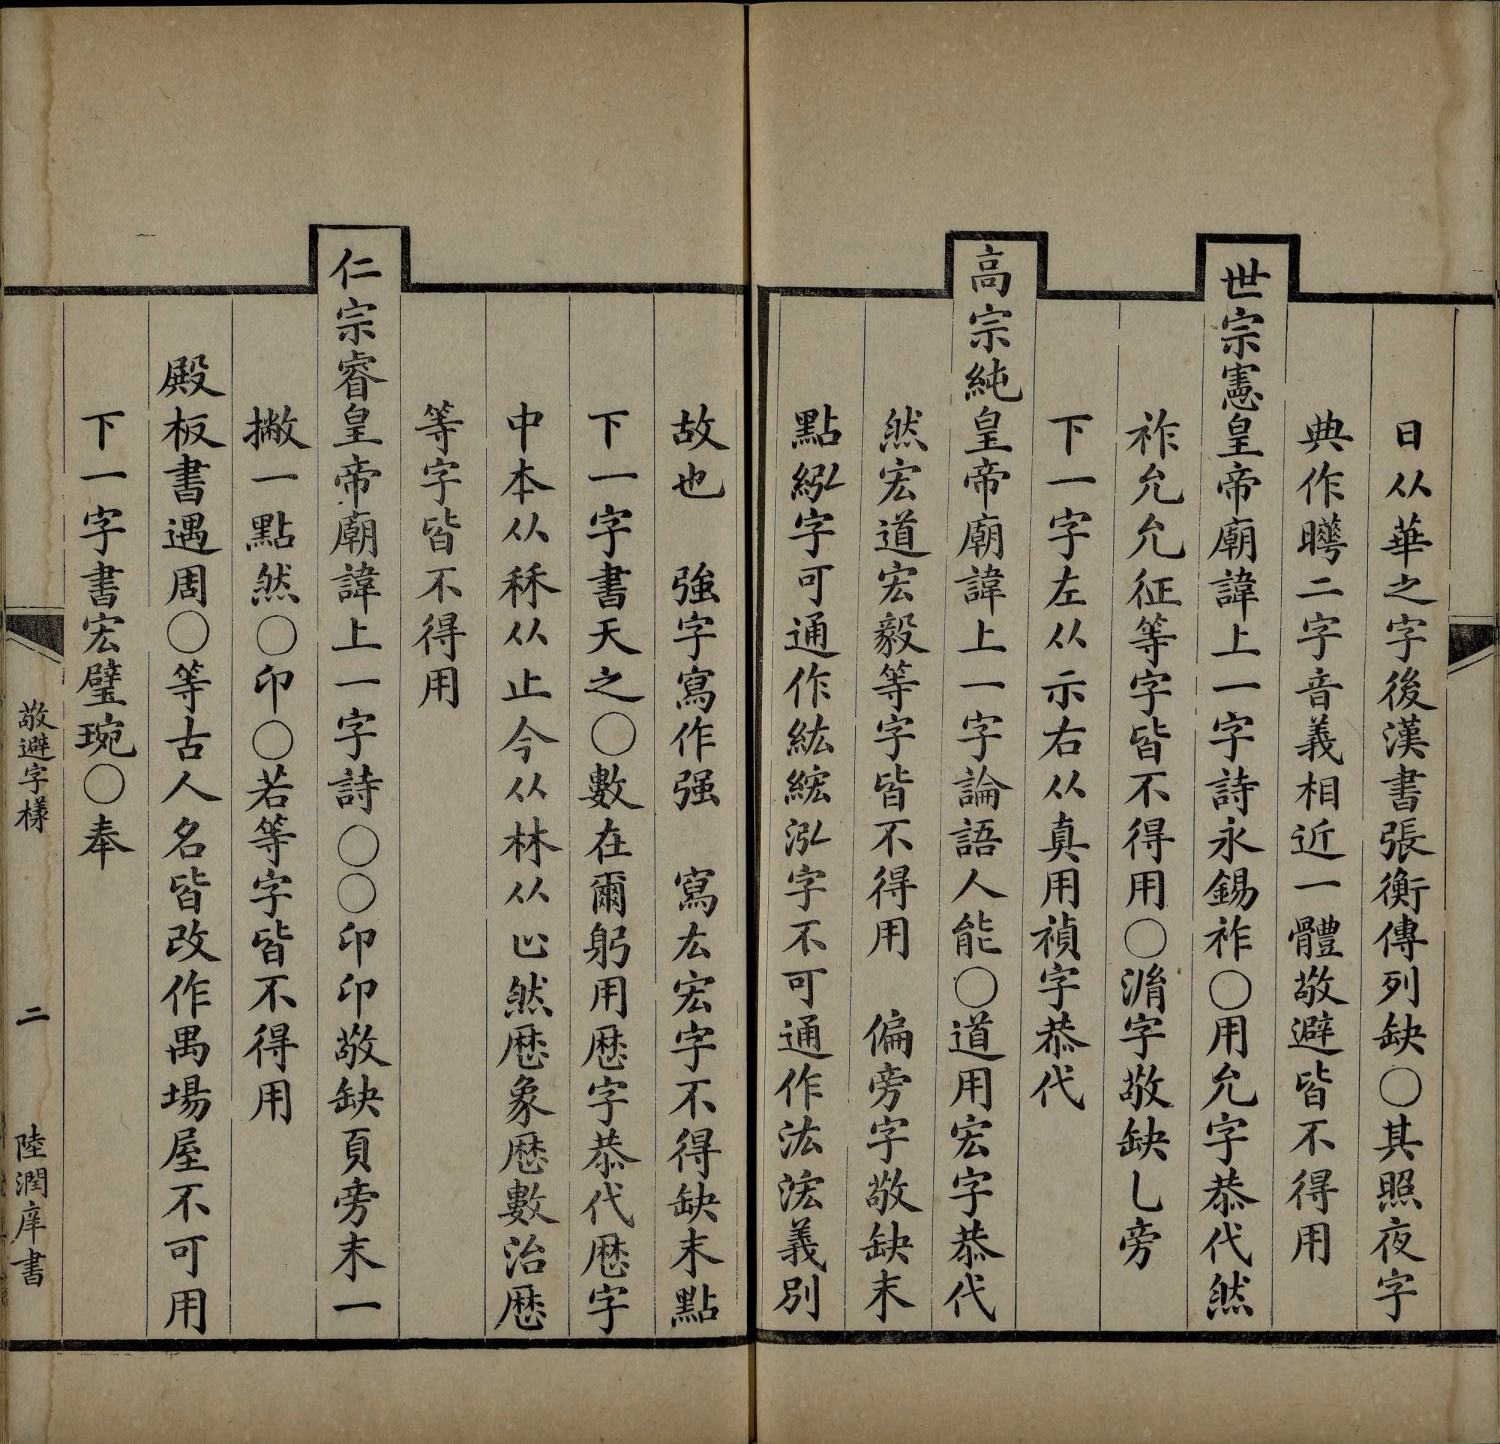 日从華之字後漢書張衡傳列缺〇其照夜字
典作曄二字音義相近一體敬避皆不得用
世宗憲皇帝廟諱上一字詩永錫祚〇用允字恭代然
祚允允征等字皆不得用〇湑字敬缺乚旁
下一字左从示右从真用禎字恭代
高宗純皇帝廟諱上一字論語人能〇道用宏字恭代
然宏道宏毅等字皆不得用 偏旁字敬缺末
點字可通作紘綋泓字不可通作汯浤義別
故也 強字寫作强 寫厷宏字不得缺末點
下一字書天之〇數在爾躬用厯字恭代厯字
中本从秝从止今从林从心然厯象厯數治厯
等字皆不得用
仁宗睿皇帝廟諱上一字詩〇〇卬卬敬缺頁旁末一
撇一點然〇卬〇若等字皆不得用
殿板書遇周〇等古人名皆改作禺場屋不可用
下一字書宏璧琬〇奉
敬避字樣 二 陸潤庠書